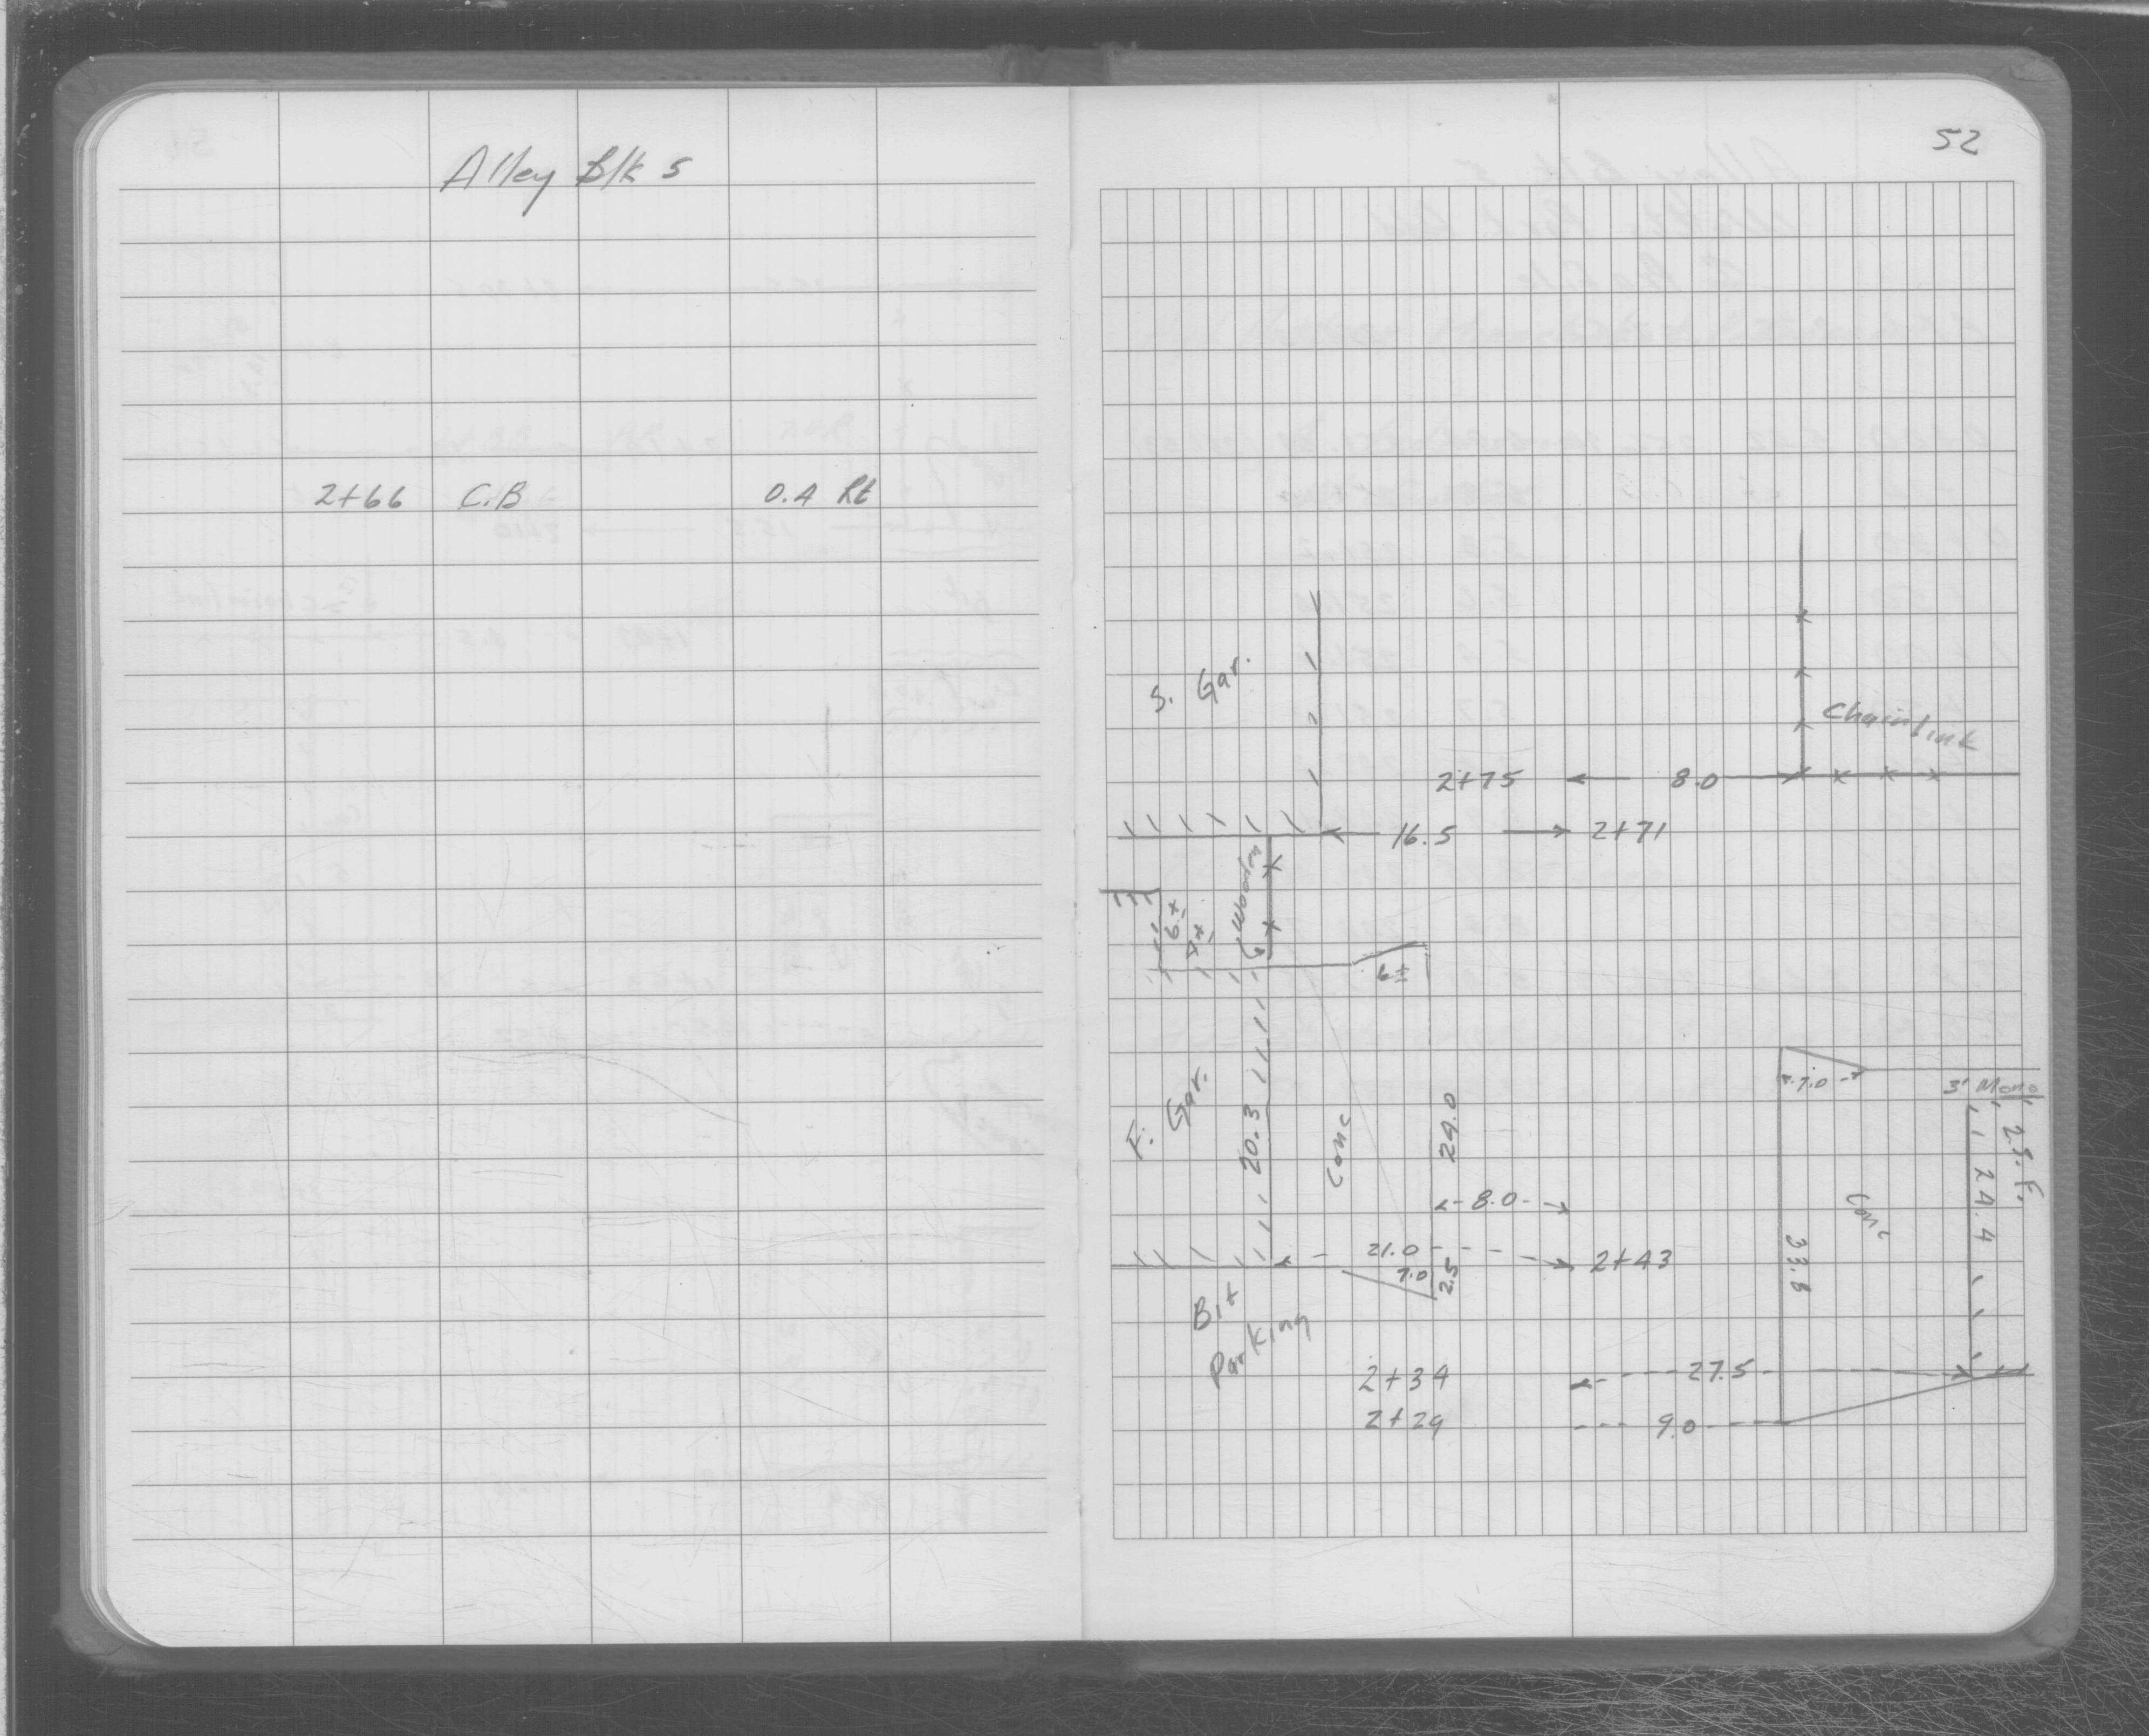 Alley Blk 5
2+66 C.B 0.4 Rt
52
S. Gar.
Chainlink
2+75 8.0
16.5 2+71
Wooden
6±
4±
6±
7.0
3' Mono
F. Gar.
20.3
Conc
29.0
2 S. F.
24.4
Conc
33.8
8.0
21.0 2+43
7.0
2.5
Bit
Parking
2+34 27.5
2+29 9.0